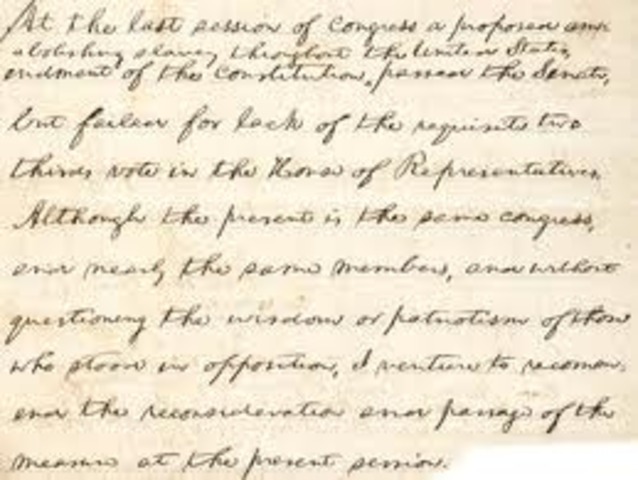 At the last session of Congress a proposed am-
abolishing slavery throughout the United States,
endment of the Constitution, passed the Senate,
but failed for lack of the requisite two
thirds vote in the House of Representatives.
Although the present is the same Congress,
and nearly the same members, and without
questioning the wisdom or patriotism of those
who stood in opposition, I venture to recomm-
end the reconsideration and passage of the
measure at the present session.